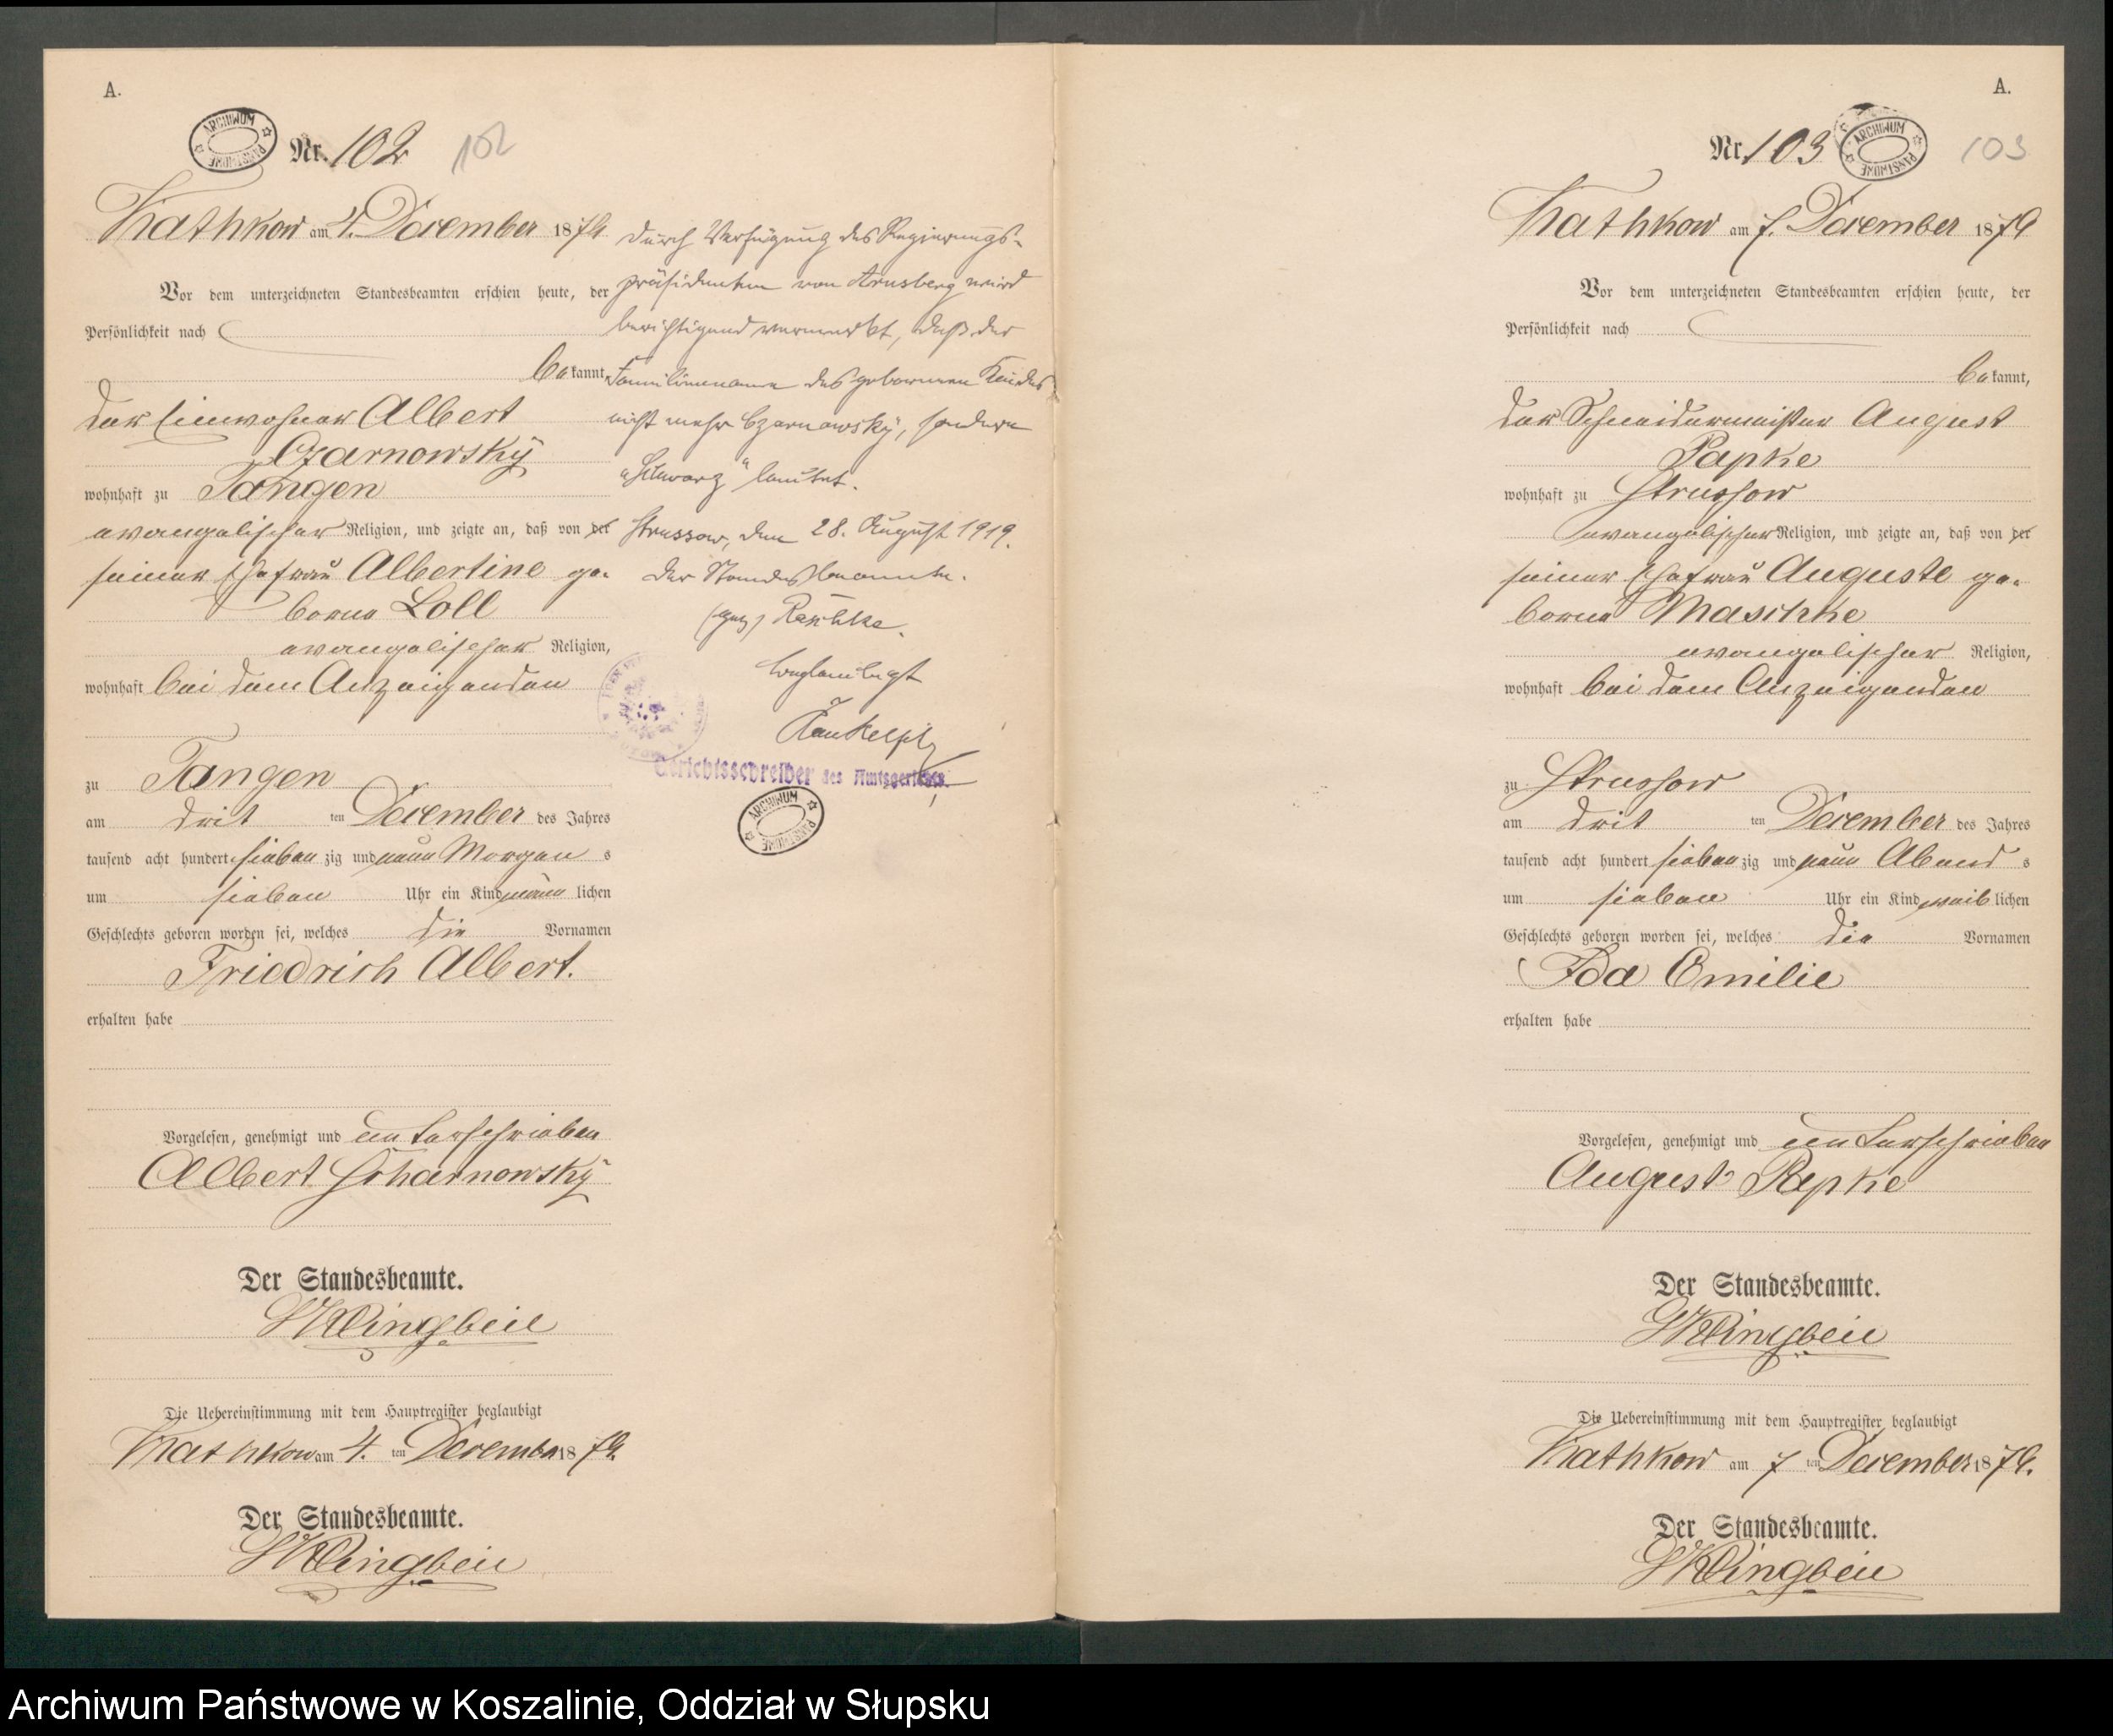 A.
ARCHIWUM PAŃSTWOWE
Nr. 102 102
Kathkow am 4. December 1879
Vor dem unterzeichneten Standesbeamten erschien heute, der
Persönlichkeit nach
bekannt,
der Einwohner Albert
Czarnowsky
wohnhaft zu Tangen
evangelischer Religion, und zeigte an, daß von der
seiner Ehefrau Albertine ge-
borne Loll
evangelischer Religion,
wohnhaft bei dem Anzeigenden
zu Tangen
am drit ten December des Jahres
tausend acht hundert sieben zig und neun Morgens
um sieben Uhr ein Kind männlichen
Geschlechts geboren worden sei, welches die Vornamen
Friedrich Albert.
erhalten habe
Vorgelesen, genehmigt und unterschrieben
Albert Scharnowsky
Der Standesbeamte.
Klingbeil
Die Uebereinstimmung mit dem Hauptregister beglaubigt
Kathkow am 4. ten December 1879.
Der Standesbeamte.
Klingbeil
Durch Verfügung des Regierungs-
präsidenten von Arnsberg wird
berichtigend vermerkt, daß der
Familienname des geborenen Kindes
nicht mehr Czarnowsky, sondern
"Schwarz" lautet.
Strussow, den 28. August 1919.
Der Standesbeamte.
(gez) Raschke.
Beglaubigt
Gerichtsschreiber des Amtsgerichts.
ARCHIWUM PAŃSTWOWE
A.
Nr. 103 ARCHIWUM PAŃSTWOWE 103
Kathkow am 7. December 1879
Vor dem unterzeichneten Standesbeamten erschien heute, der
Persönlichkeit nach
bekannt,
der Schneidermeister August
Papke
wohnhaft zu Strussow
evangelischer Religion, und zeigte an, daß von der
seiner Ehefrau Auguste ge-
borne Maschke
evangelischer Religion,
wohnhaft bei dem Anzeigenden
zu Strussow
am drit ten December des Jahres
tausend acht hundert sieben zig und neun Abends
um sieben Uhr ein Kind weiblichen
Geschlechts geboren worden sei, welches die Vornamen
Ida Emilie
erhalten habe
Vorgelesen, genehmigt und unterschrieben
August Papke
Der Standesbeamte.
Klingbeil
Die Uebereinstimmung mit dem Hauptregister beglaubigt
Kathkow am 7 ten December 1879.
Der Standesbeamte.
Klingbeil
Archiwum Państwowe w Koszalinie, Oddział w Słupsku